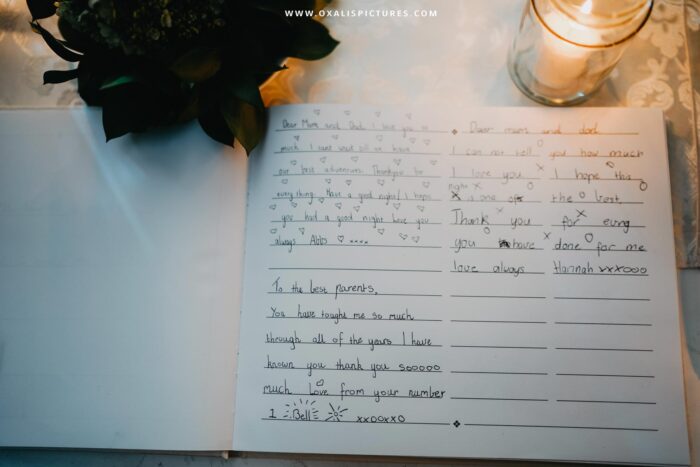 WWW.OXALISPICTURES.COM
Dear Mom and Dad, I love you so
much I cant wait till we have
our best adventures. Thankyou for
everything. Have a good night/I hope
you had a good night Love you
always Abbs xxxx
To the best parents,
You have taught me so much
through all of the years I have
known you thank you sooooo
much Love from your number
1 Bell xxooxxo
Dear mum and dad
I can not tell you how much
I love you I hope this
night
is one off the best
Thank you for evrg
you have done for me
love always Hannah xxxooo